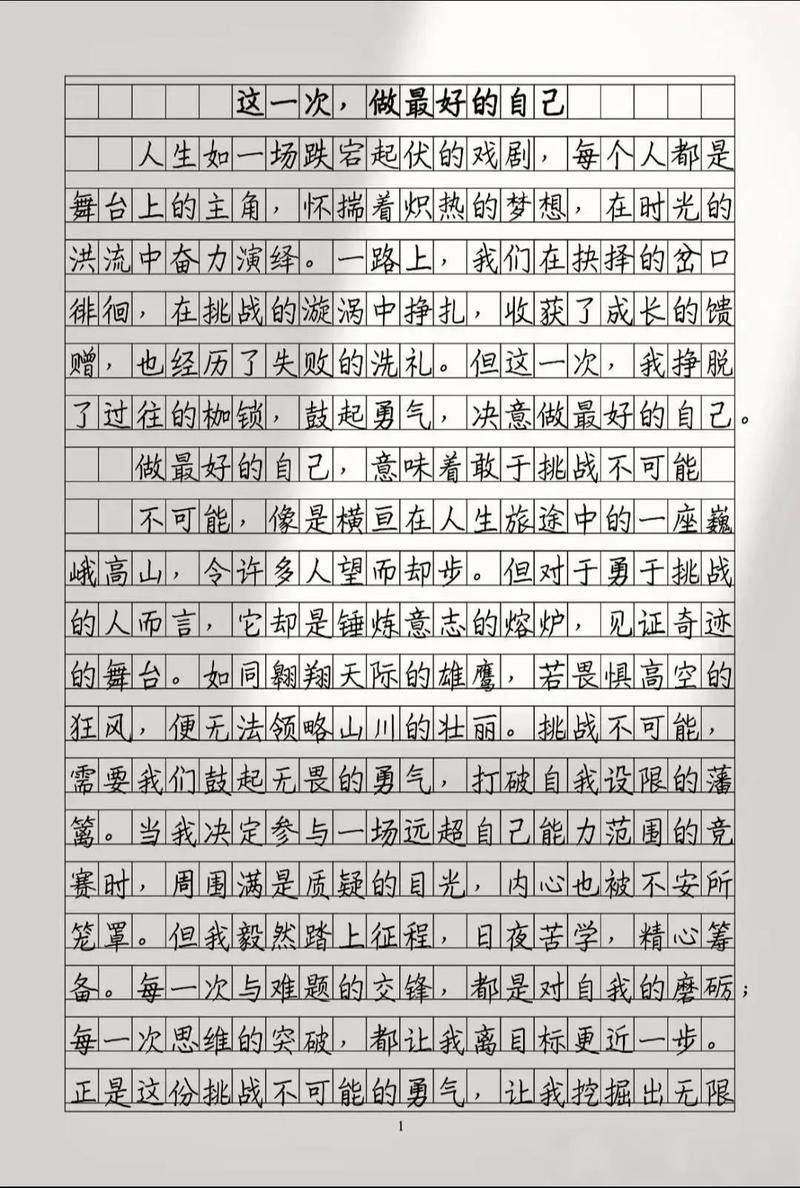 这一次，做最好的自己
人生如一场跌宕起伏的戏剧，每个人都是
舞台上的主角，怀揣着炽热的梦想，在时光的
洪流中奋力演绎。一路上，我们在抉择的岔口
徘徊，在挑战的漩涡中挣扎，收获了成长的馈
赠，也经历了失败的洗礼。但这一次，我挣脱
了过往的枷锁，鼓起勇气，决意做最好的自己。
做最好的自己，意味着敢于挑战不可能
不可能，像是横亘在人生旅途中的一座巍
峨高山，令许多人望而却步。但对于勇于挑战
的人而言，它却是锤炼意志的熔炉，见证奇迹
的舞台。如同翱翔天际的雄鹰，若畏惧高空的
狂风，便无法领略山川的壮丽。挑战不可能，
需要我们鼓起无畏的勇气，打破自我设限的藩
篱。当我决定参与一场远超自己能力范围的竞
赛时，周围满是质疑的目光，内心也被不安所
笼罩。但我毅然踏上征程，日夜苦学，精心筹
备。每一次与难题的交锋，都是对自我的磨砺；
每一次思维的突破，都让我离目标更近一步。
正是这份挑战不可能的勇气，让我挖掘出无限
1